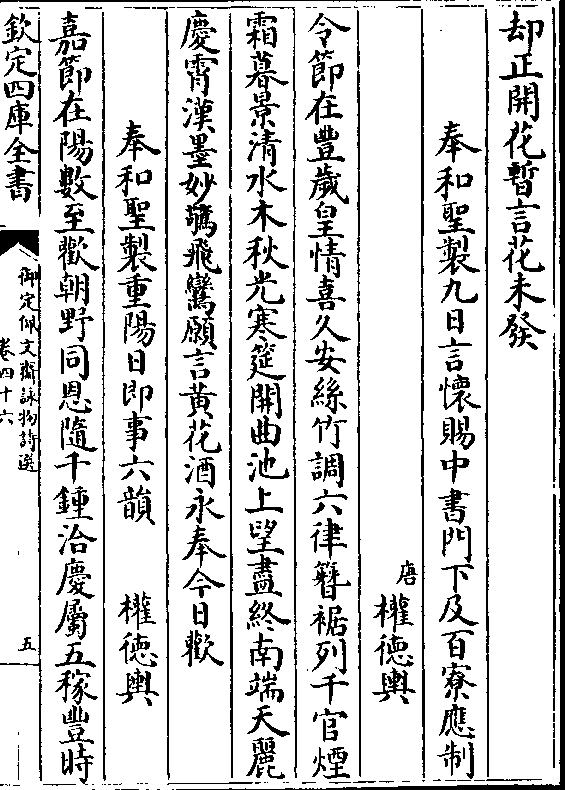 却正開花暫言花未發
奉和聖製九日言懷賜中書門下及百寮應制
唐 權德輿
令節在豐歲皇情喜久安絲竹調六律簪裾列千官煙
霜暮景清水木秋光寒筵開曲池上望盡終南端天麗
慶霄漢墨妙驚飛鸞願言黃花酒永奉今日歡
奉和聖製重陽日即事六韻 權德輿
嘉節在陽數至歡朝野同恩隨千鍾洽慶屬五稼豐時
欽定四庫全書
御定佩文齋詠物詩選
卷四十六
五